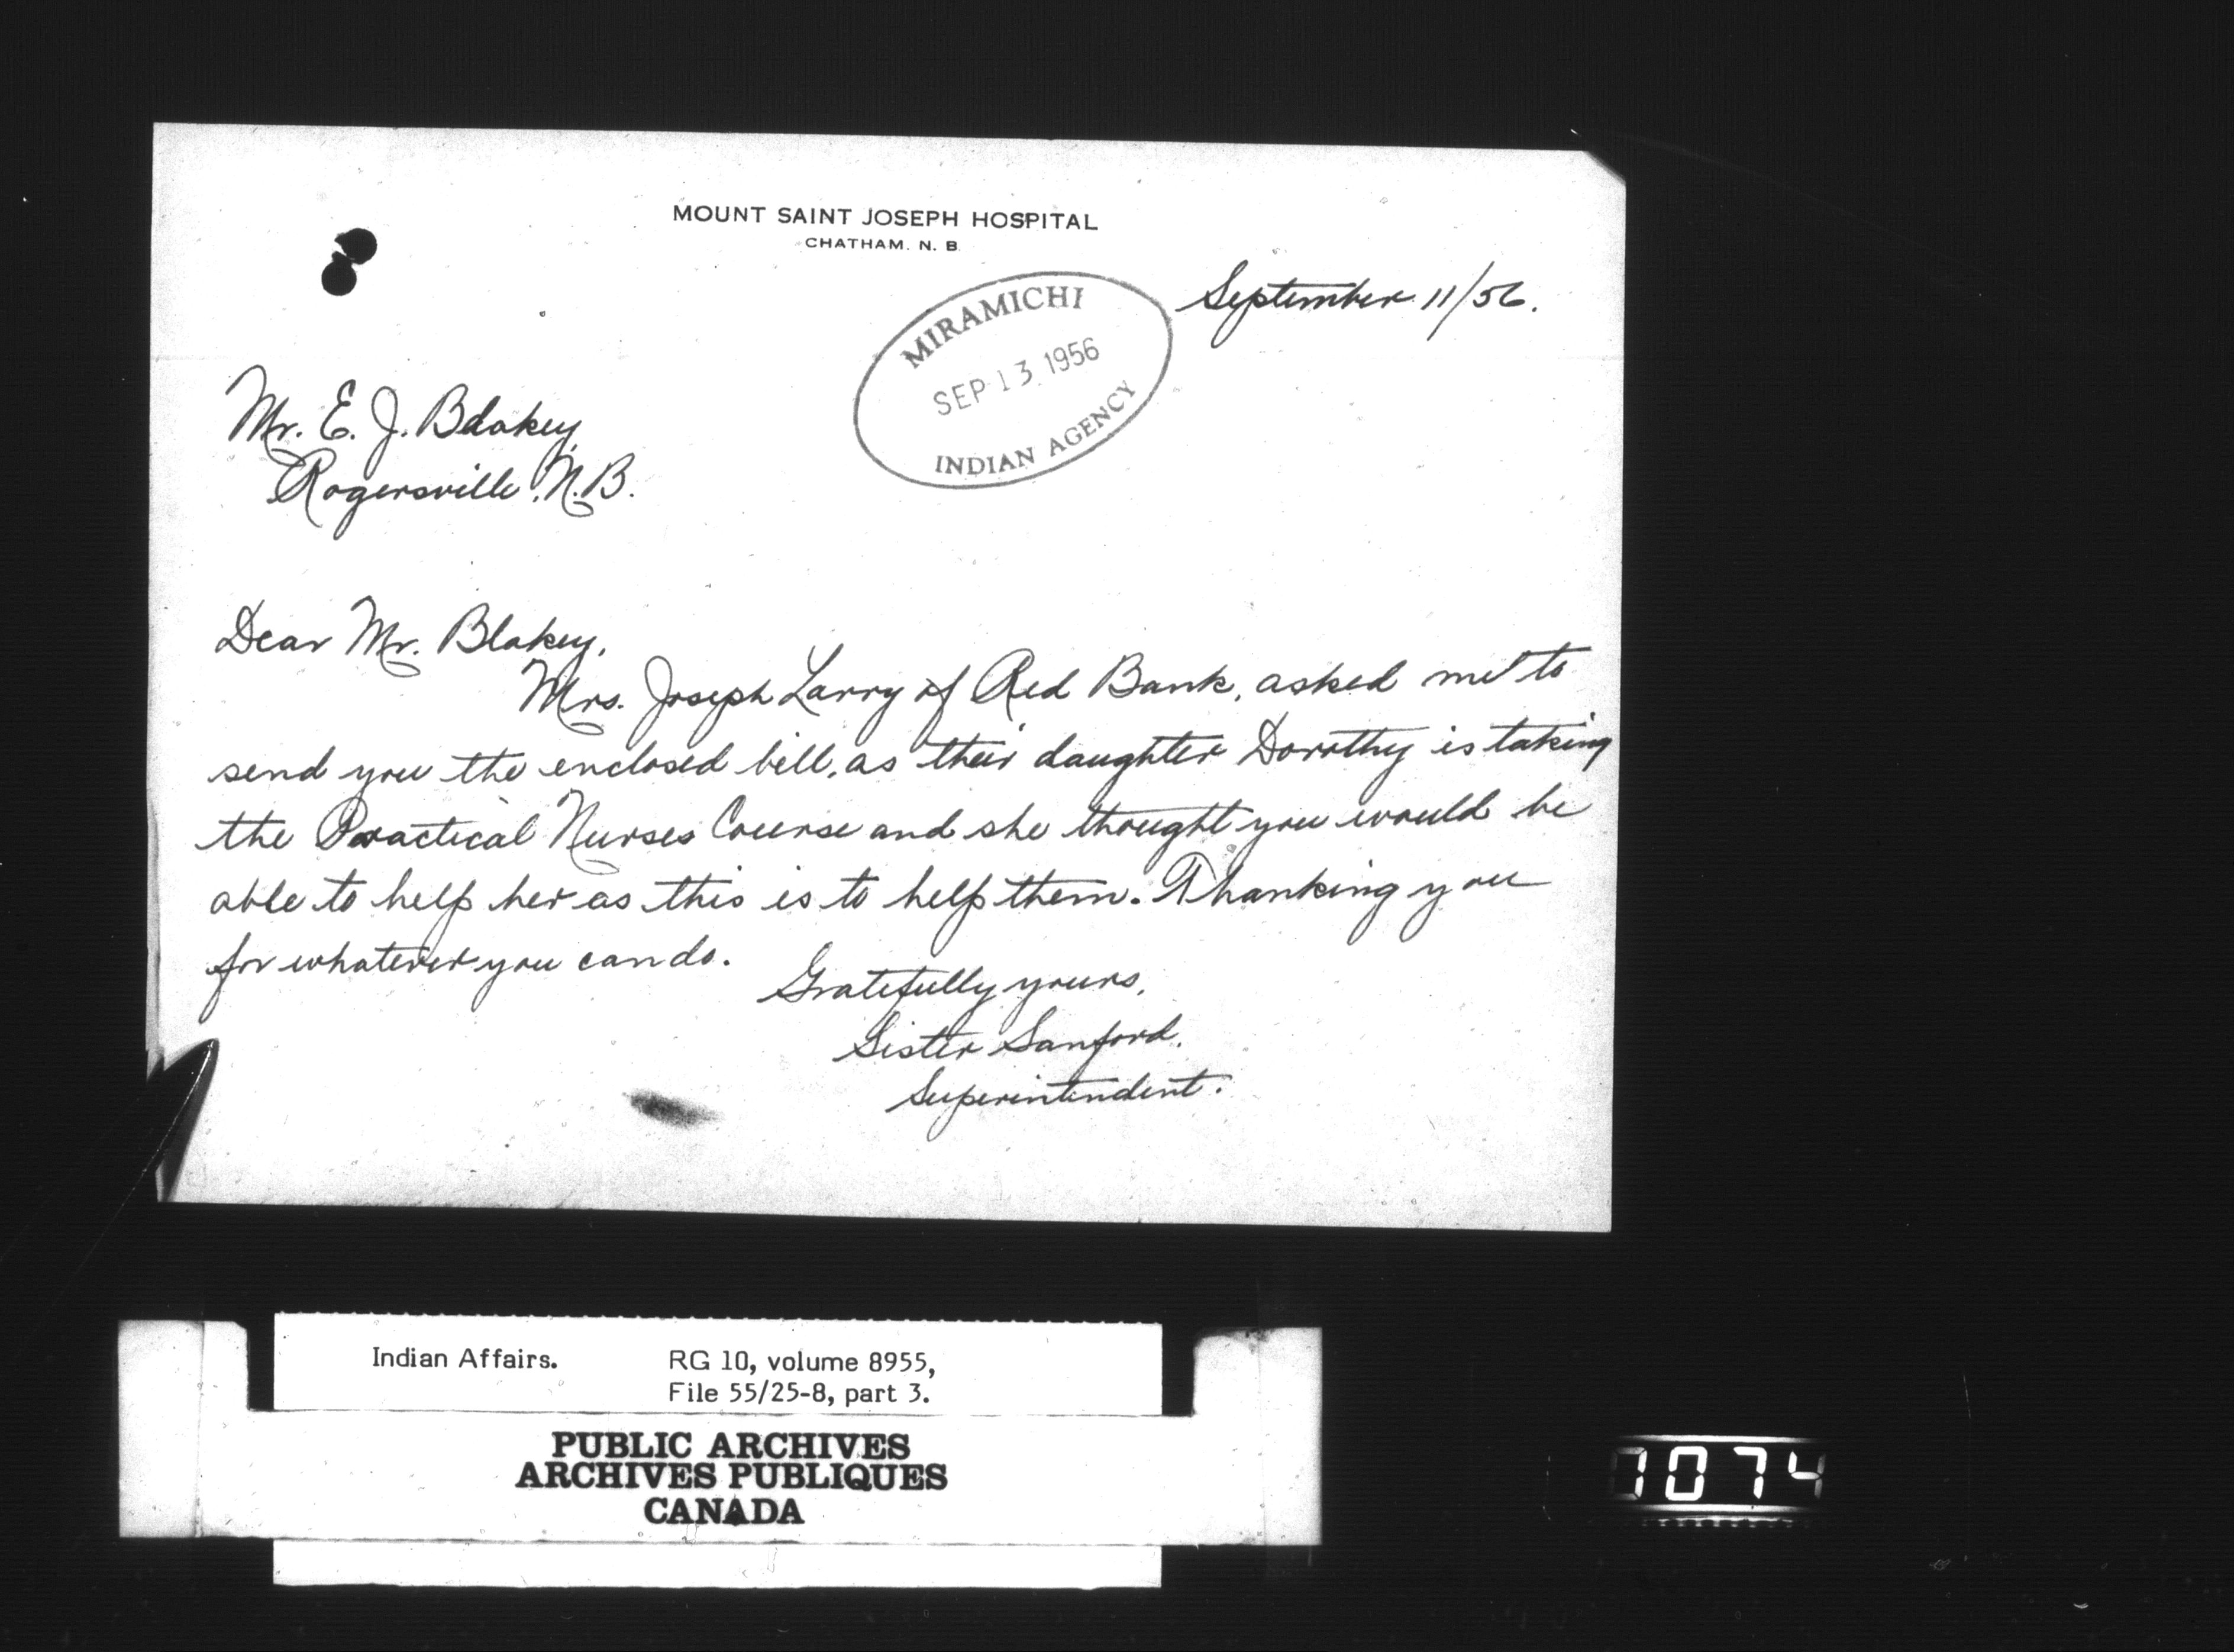 MOUNT SAINT JOSEPH HOSPITAL
CHATHAM. N. B.
September 11/56.
MIRAMICHI
SEP 13 1956
INDIAN AGENCY
Mr. E. J. Blakey
Rogersville, N.B.
Dear Mr. Blakey,
Mrs. Joseph Larry of Red Bank, asked me to
send you the enclosed bill, as their daughter Dorothy is taking
the Practical Nurses Course and she thought you would be
able to help her as this is to help them. Thanking you
for whatever you can do.
Gratefully yours,
Sister Sanford.
Superintendent.
Indian Affairs. RG 10, volume 8955,
File 55/25-8, part 3.
PUBLIC ARCHIVES
ARCHIVES PUBLIQUES
CANADA
7074